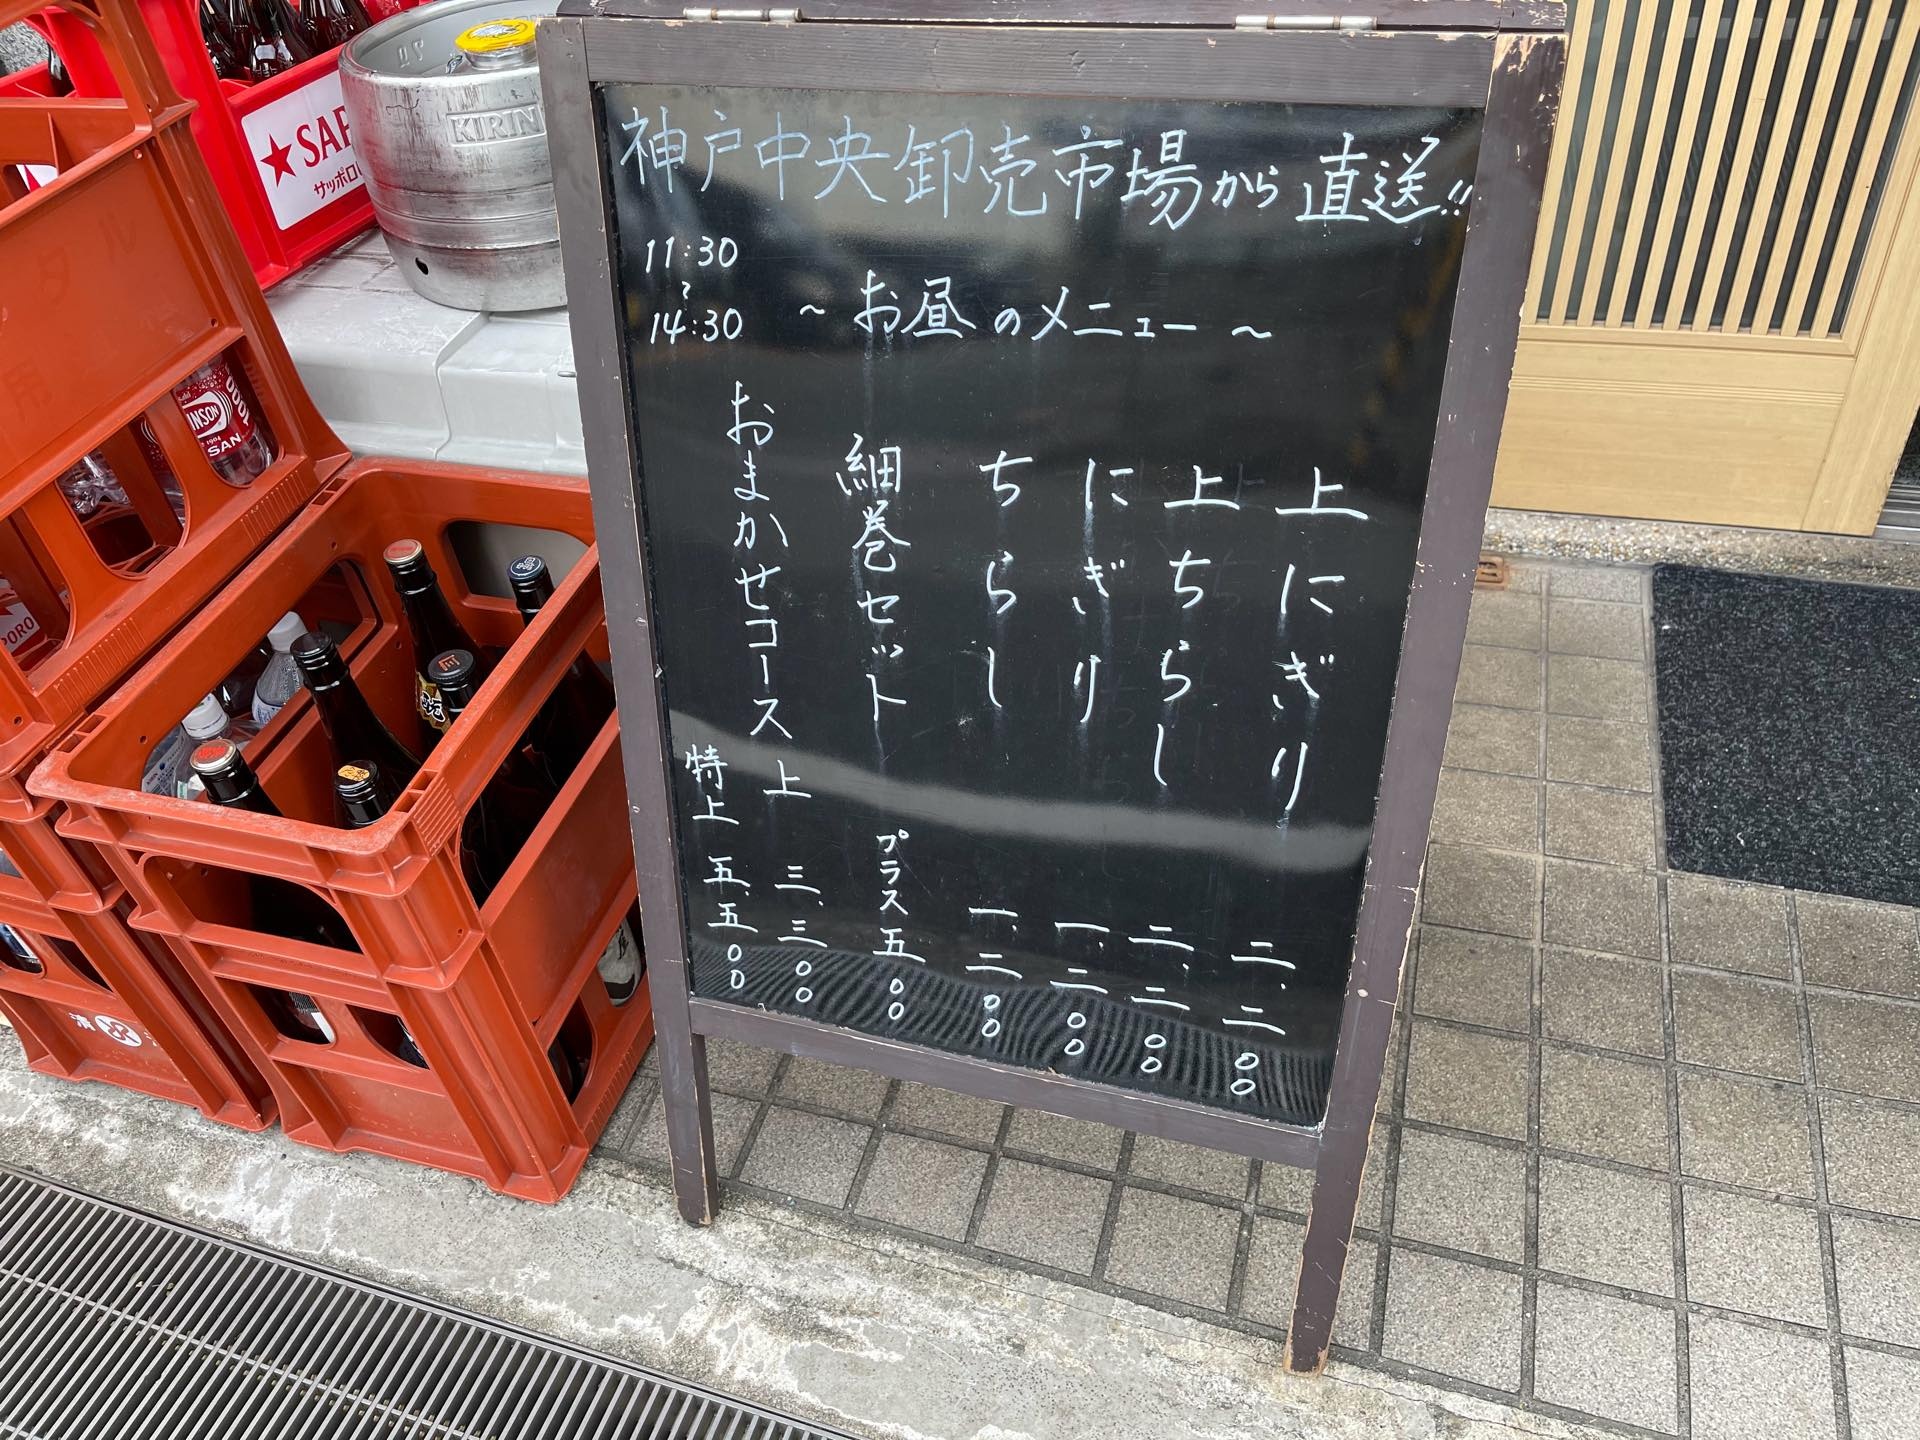 神戸中央卸売市場から直送!!
11:30
~
14:30
~お昼のメニュー~
上にぎり 二、二〇〇
上ちらし 二、二〇〇
にぎり 一、二〇〇
ちらし 一、二〇〇
細巻セット プラス五〇〇
おまかせコース 上 三、三〇〇
特上 五、五〇〇
KIRIN
★SAP
サッポロ
SAN
PORO